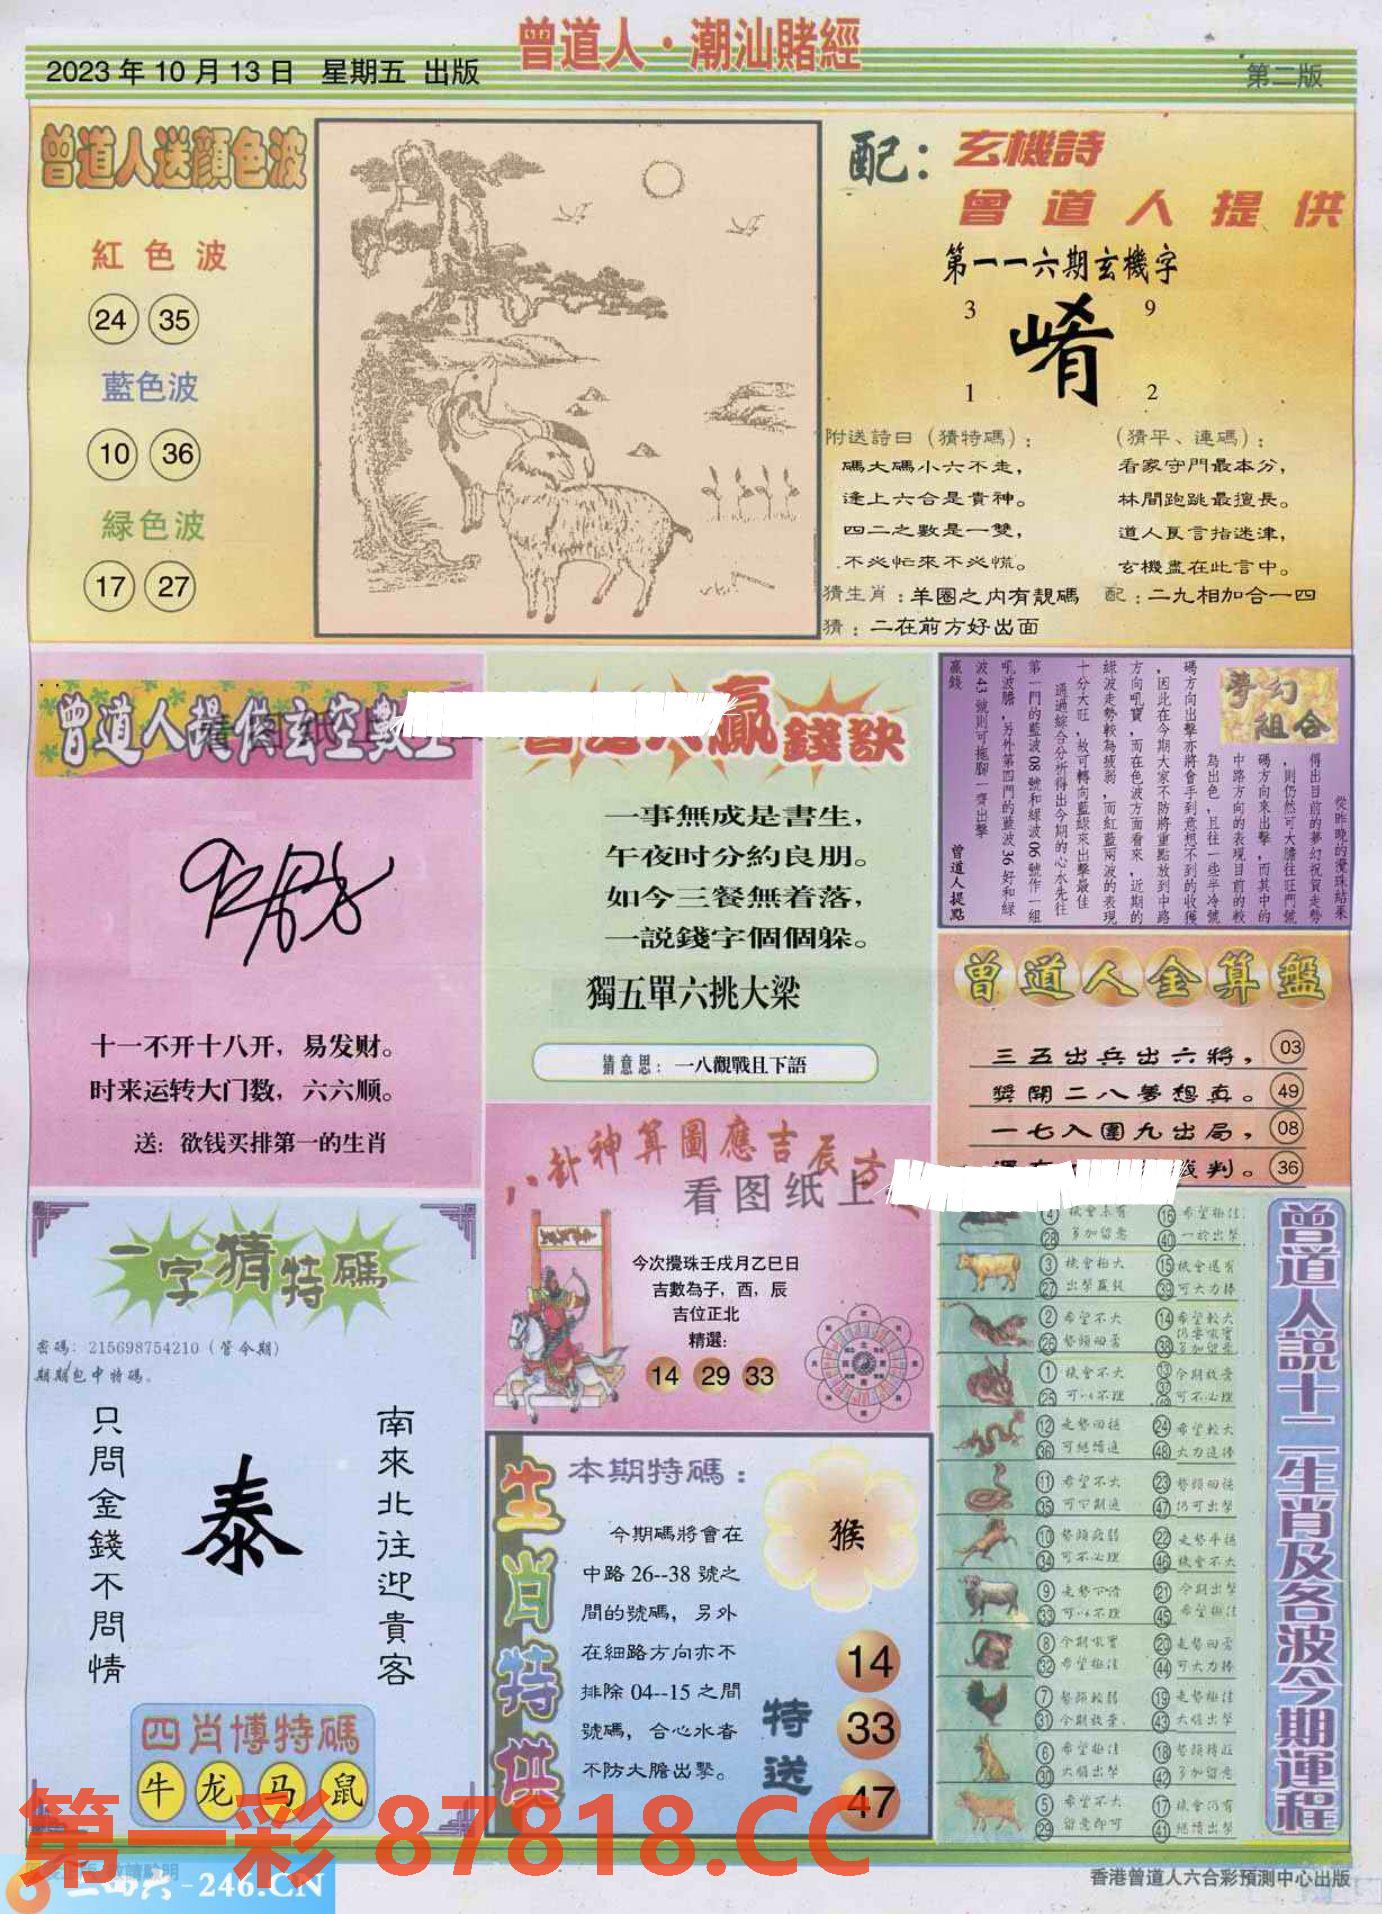 曾道人·潮汕賭經
2023年10月13日 星期五 出版
第二版
曾道人送顔色波
紅色波
24 35
藍色波
10 36
緑色波
17 27
配：玄機詩
曾道人提供
第一一六期玄機字
3 9
崤
1 2
附送詩曰（猜特碼）：
碼大碼小六不走，
逢上六合是貴神。
四二之數是一雙，
不必忙來不必慌。
（猜平、連碼）：
看家守門最本分，
林間跑跳最擅長。
道人良言指迷津，
玄機盡在此言中。
猜生肖：羊圈之内有靚碼
配：二九相加合一四
猜：二在前方好出面
曾道人提供玄空數
十一不开十八开，易发财。
时来运转大门数，六六顺。
送：欲钱买排第一的生肖
贏錢訣
一事無成是書生，
午夜时分約良朋。
如今三餐無着落，
一説錢字個個躲。
獨五單六挑大梁
猜意思：一八觀戰且下語
夢幻組合
從昨晚的攪珠結果
得出目前的夢幻祝賀走勢
，則仍然可大膽往旺門號
碼方向來出擊，而其中的
中路方向的表現目前的較
為出色，且往一些半冷號
碼方向出擊亦將會手到意想不到的收獲
，因此在今期大家不防將重點放到中路
方向吼寶，而在色波方面看來，近期的
緑波走勢較為疲弱，而紅藍兩波的表現
十分大旺，故可轉向藍緑來出擊最佳
通過綜合分析得出今期的心水先往
第一門的藍波08號和緑波06號作一組
吼波膽，另外第四門的藍波36好和緑
波43號則可拖脚一齊出擊
贏錢
曾道人提點
曾道人金算盤
三五出兵出六將，03
獎開二八夢想真。49
一七入圍九出局，08
判。36
八卦神算圖應吉辰方
看图纸上
今次攪珠壬戌月乙巳日
吉數為子，酉，辰
吉位正北
精選：
14 29 33
一字猜特碼
密碼：215698754210（管今期）
期期包中特碼。
南來北往迎貴客
泰
只問金錢不問情
四肖博特碼
牛 龙 马 鼠
生肖特供
本期特碼：
猴
今期碼將會在
中路26--38號之
間的號碼，另外
在細路方向亦不
排除04--15之間
號碼，合心水者
不防大膽出擊。
特送
14
33
47
曾道人説十二生肖及各波今期運程
④ 機會未有 ⑯ 希望極佳
㉘ 多加留意 ㊵ 一於出擊
③ 機會極大 ⑮ 機會還有
㉗ 出擊贏錢 ㊴ 可大力捧
② 希望不大 ⑭ 希望較大
㉖ 勢頭回落 ㊳
① 機會不大 ⑬ 今期放棄
㉕ 可以不理 可不必理
⑫ 走勢回穩 ㉔ 希望較大
㊱ 可繼續追 ㊽ 大力追捧
⑪ 希望不大 ㉓ 勢頭回穩
㉟ 可下期追 ㊼ 仍可出擊
⑩ 勢頭疲弱 ㉒ 走勢平穩
㉞ 可不必理 ㊻ 機會不大
⑨ 走勢下滑 ㉑ 今期出擊
㉝ 可以不理 ㊺ 希望極佳
⑧ 今期吼寶 ⑳ 走勢回落
㉜ 希望極佳 ㊹ 可大力捧
⑦ 勢頭較弱 ⑲ 走勢極佳
㉛ 今期放棄 ㊸ 大膽出擊
⑥ 希望極佳 ⑱ 勢頭轉旺
㉚ 大膽出擊 ㊷ 多加留意
⑤ 希望不大 ⑰ 機會仍有
㉙ 留意即可 ㊶ 繼續出擊
第一彩 87818.CC
二四六-246.CN
香港曾道人六合彩預測中心出版